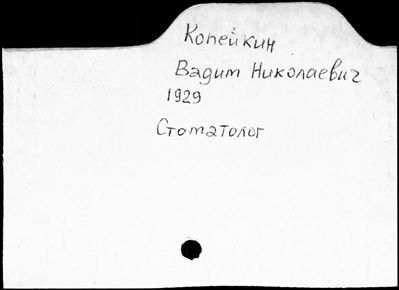 Копейкин
Вадим Николаевич
1929
Стоматолог